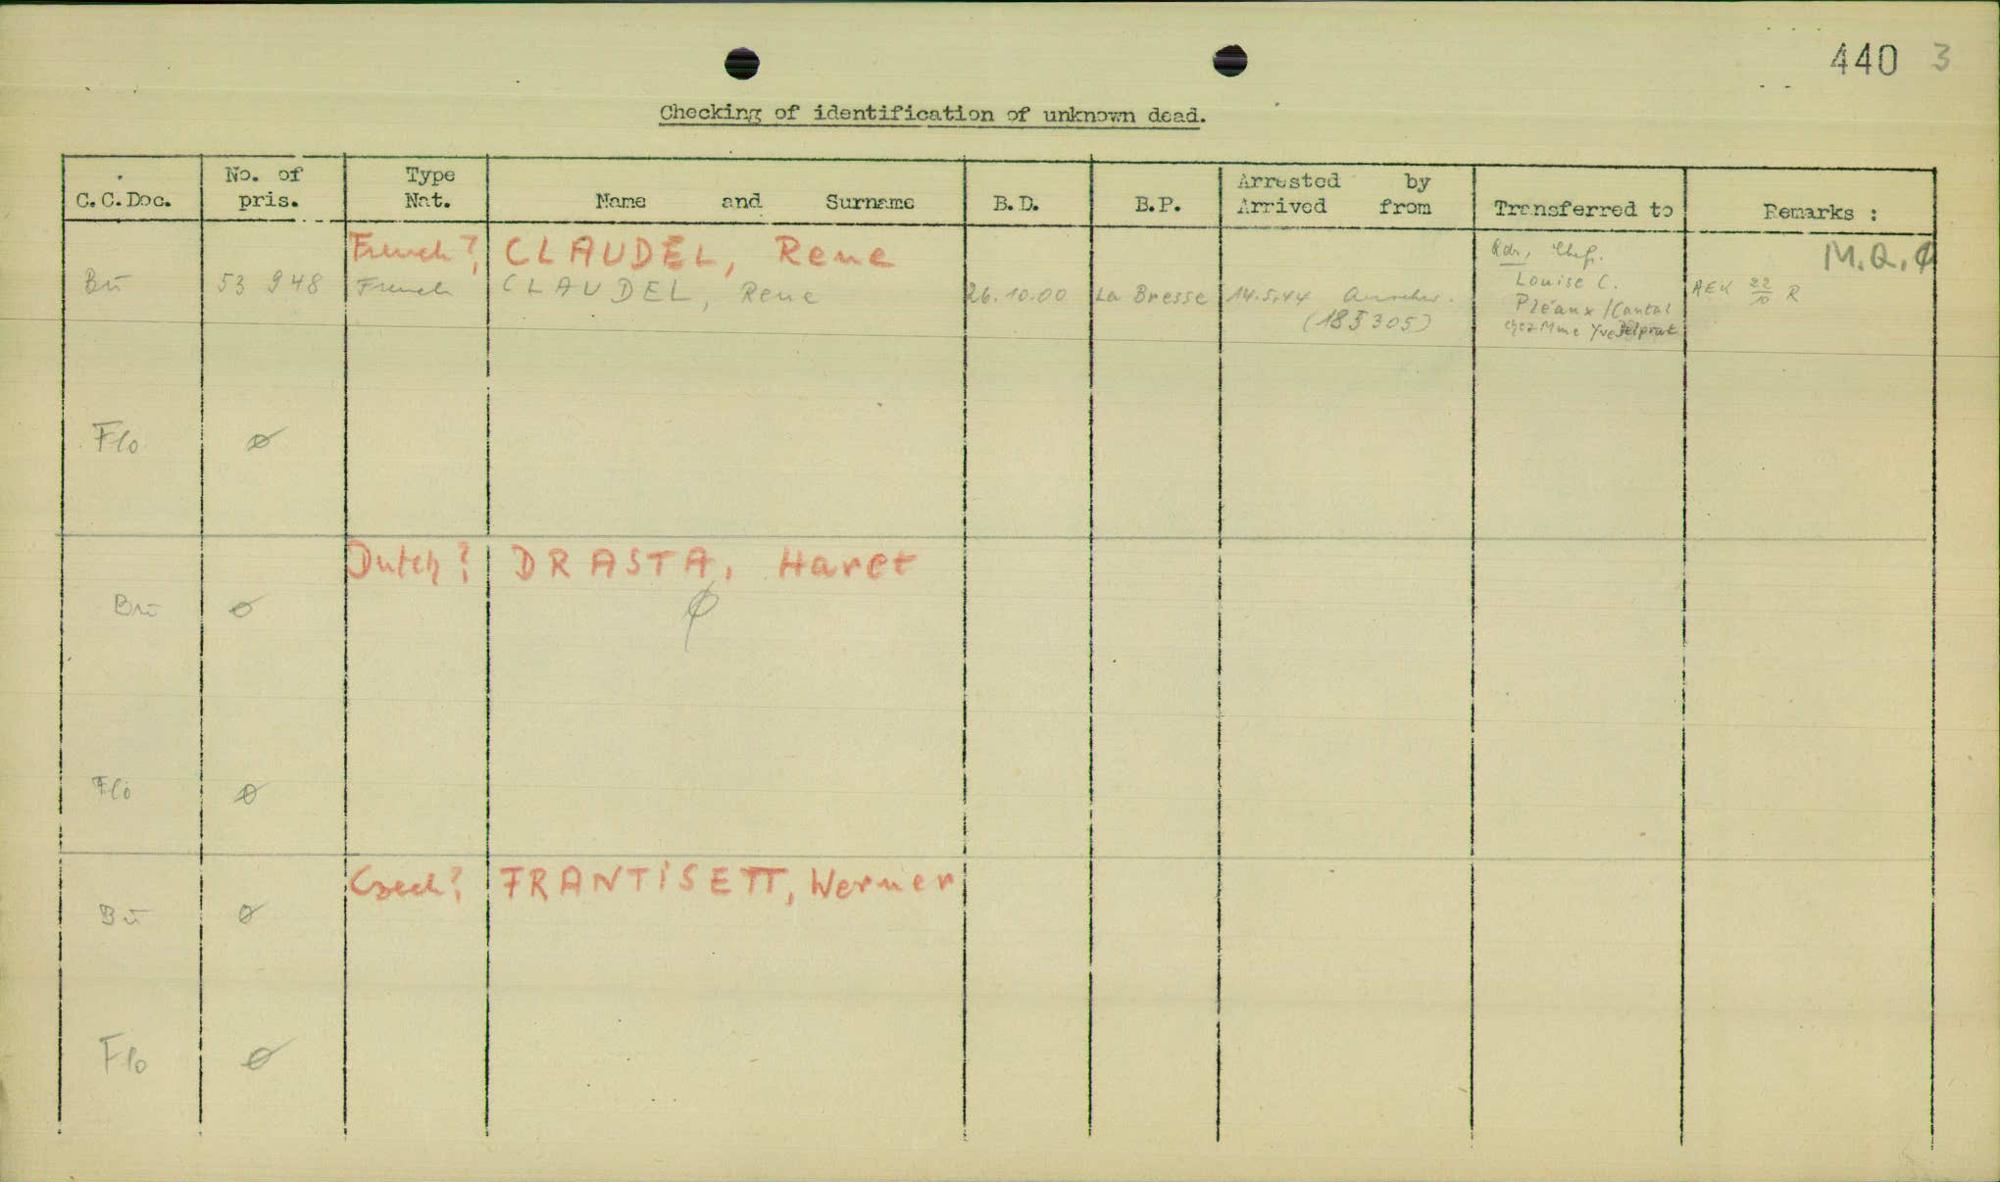 440 3
Checking of identification of unknown dead.
C.C.Doc. No. of pris. Type Nat. Name and Surname B.D. B.P. Arrested by Arrived from Transferred to Remarks :
French ? CLAUDEL, Rene M.Q. ϕ
Bu 53 948 French CLAUDEL, Rene 26.10.00 La Bresse 14.5.44 Auschw. (185305) Louise C. Pléaux /Cantal chez Mme Yve Delprat AEK 22/10 R
Flo ø
Dutch ? DRASTA, Haret
ϕ
Bu ø
Flo ø
Czech ? FRANTISETT, Werner
Bu ø
Flo ø